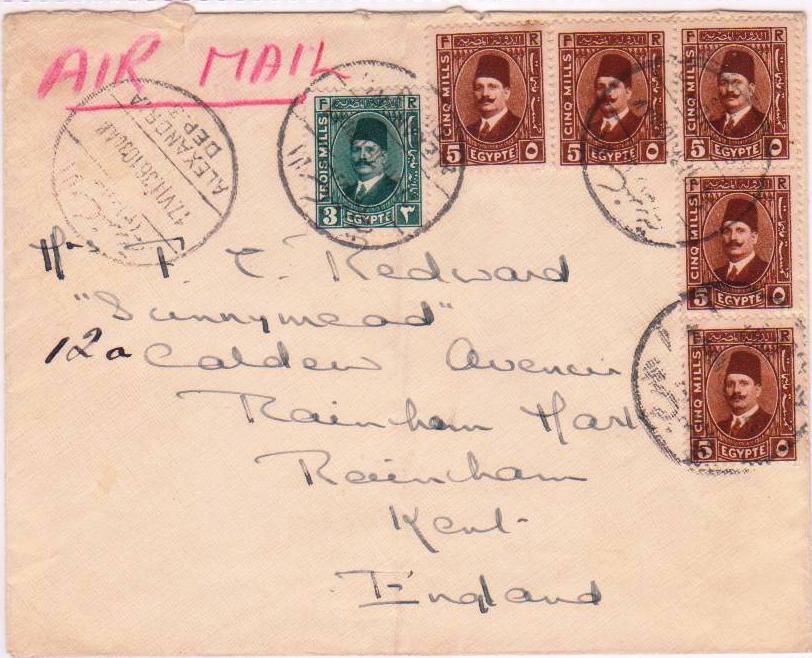 AIR MAIL
ALEXANDRIA
DEP.
17.VII.36.10
F الدولة المصرية R
CINQ MILLS
5 EGYPTE ٥
F الدولة المصرية R
CINQ MILLS
5 EGYPTE ٥
F الدولة المصرية R
CINQ MILLS
5 EGYPTE ٥
F R
TROIS MILLS
3 EGYPTE ٣
F الدولة المصرية R
CINQ MILLS
5 EGYPTE ٥
F R
CINQ MILLS
5 EGYPTE ٥
Redward
"Sunnymead"
12a Caldew Avenue
Rainham Mark
Rainham
Kent
England